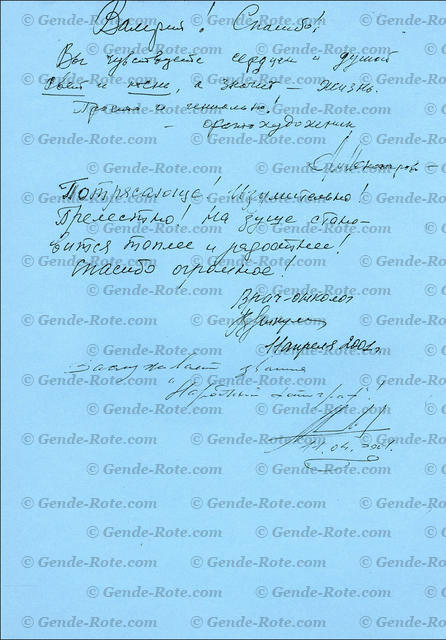 Валерия! Спасибо!
Вы чувствуете сердцем и душой
свет и тени, а значит — жизнь.
Просто и гениально!
— фотохудожник
Потрясающе! Изумительно!
Прелестно! На душе стано-
вится теплее и радостнее!
Спасибо огромное!
Врач-онколог
11 апреля 2001г.
Заслуживает звания
"Народный фотограф"!
11.04.2001.
© Gende-Rote.com